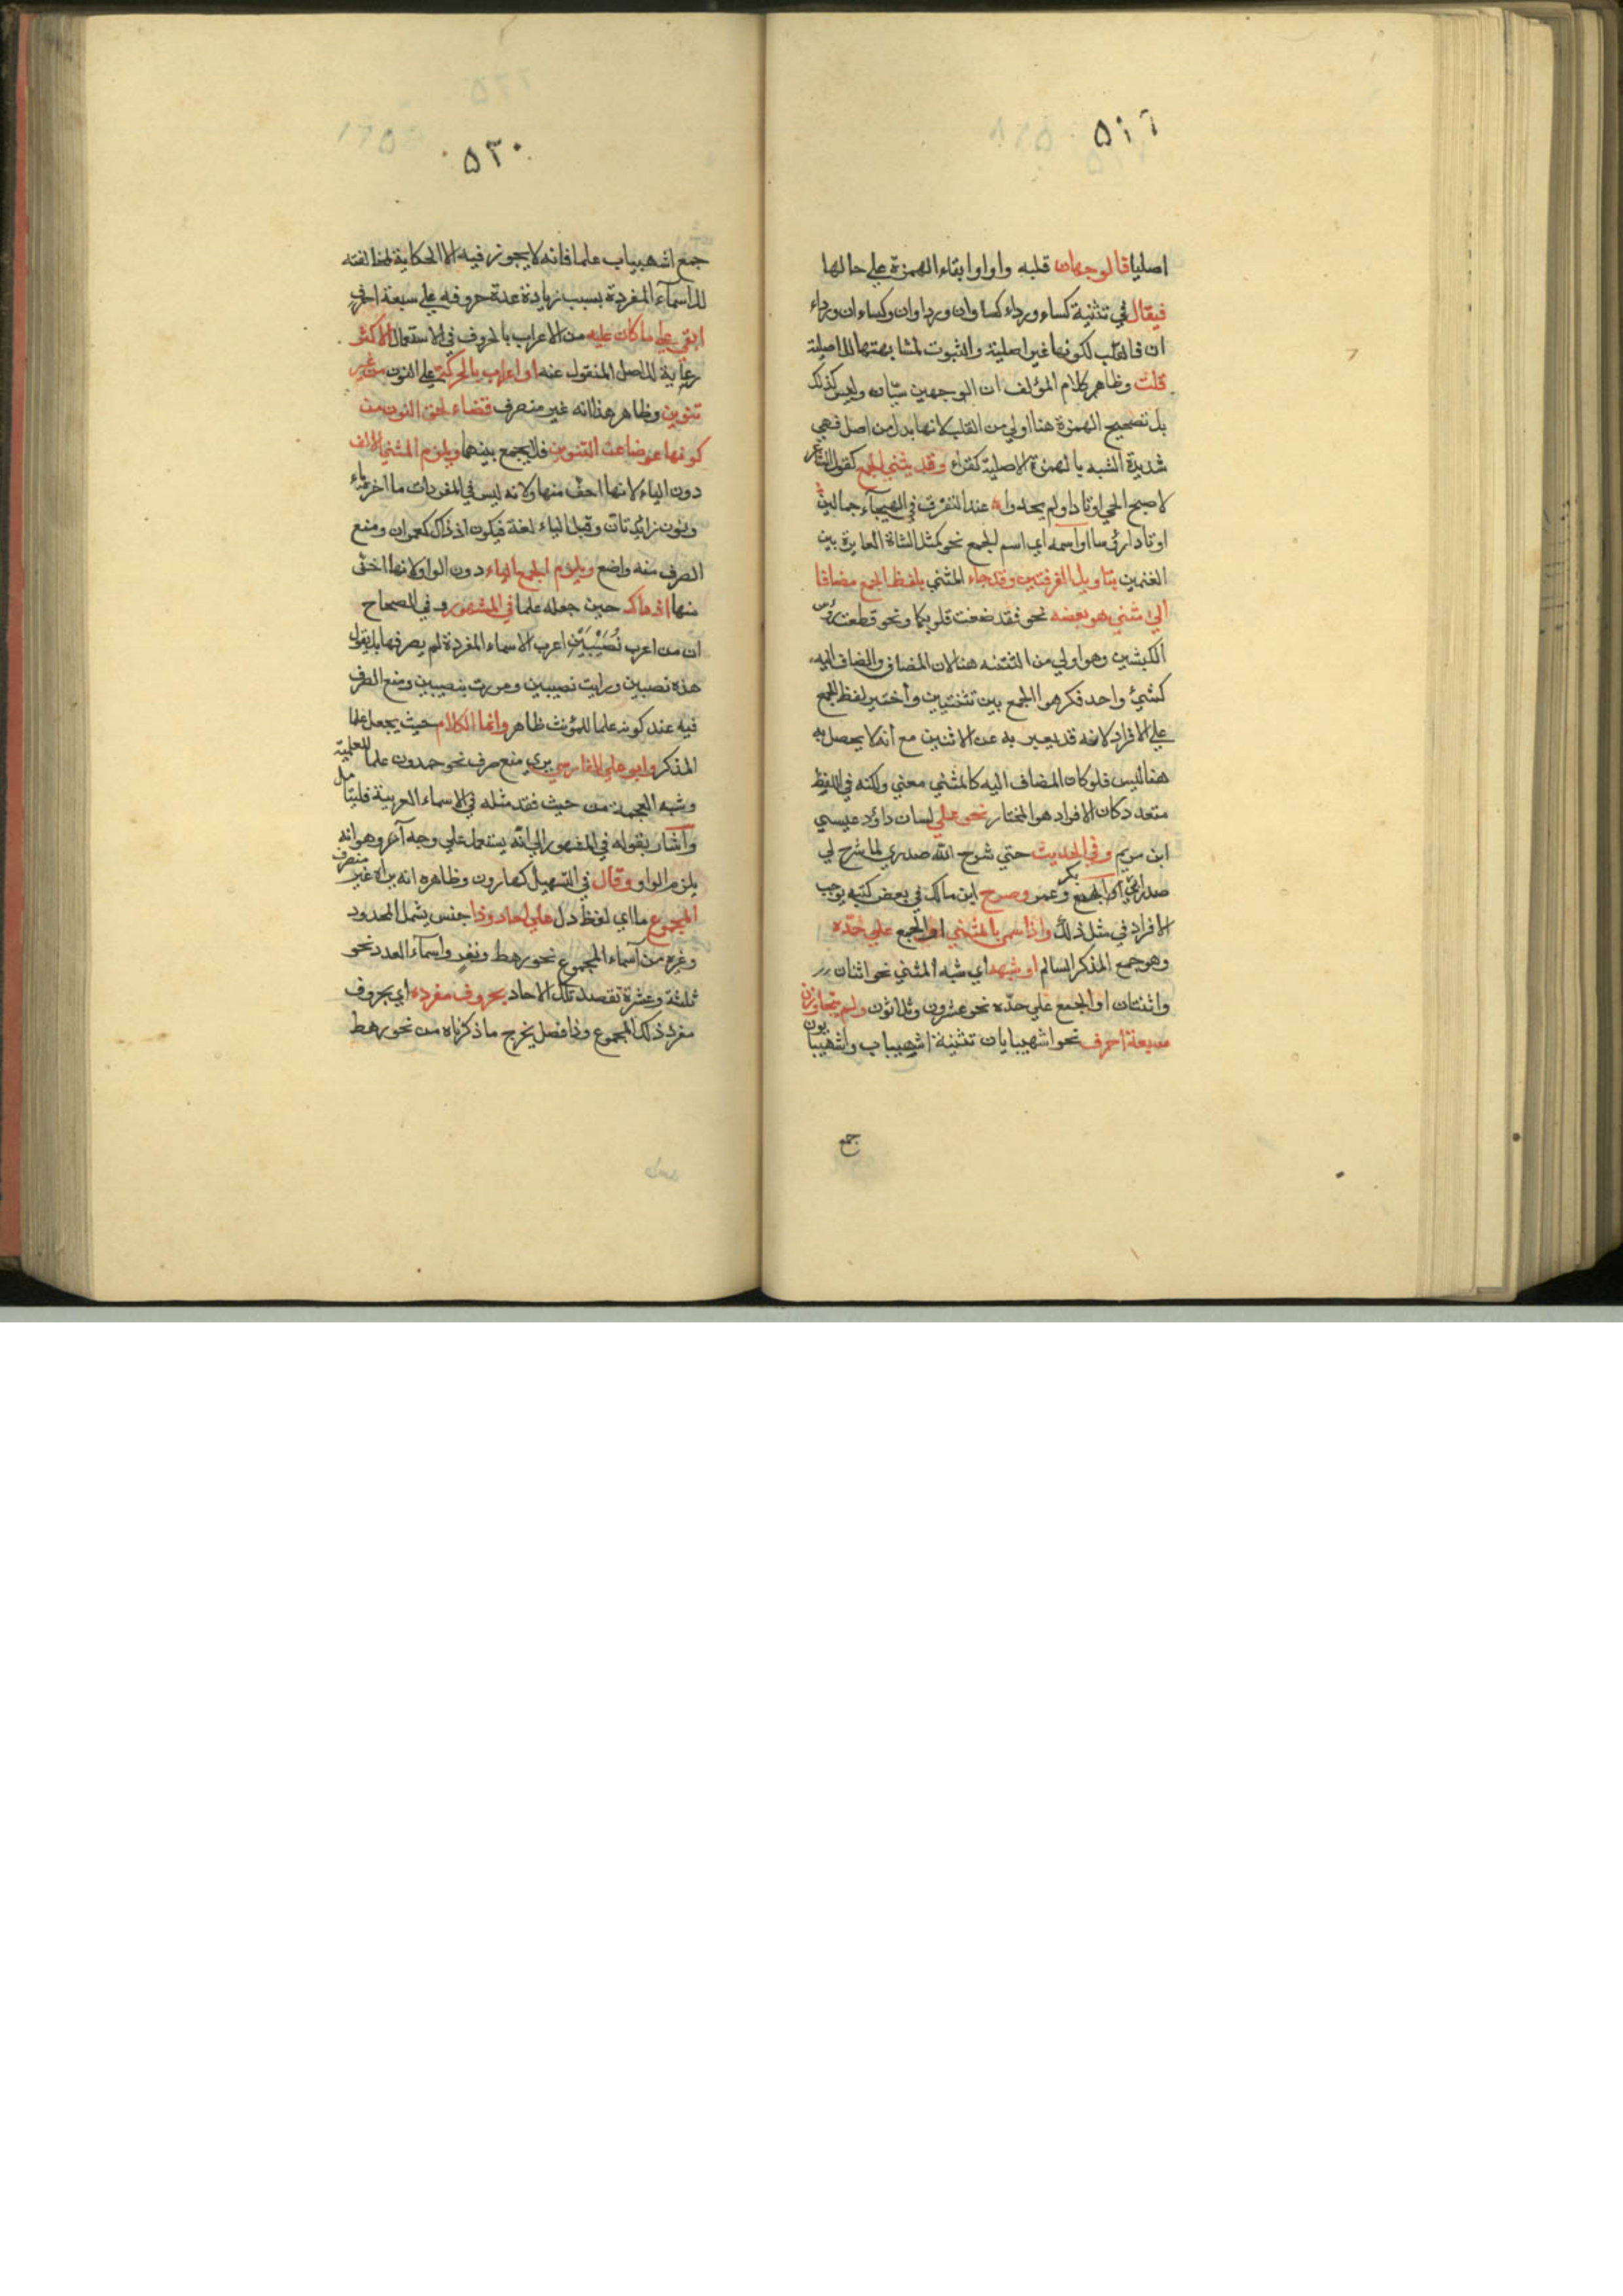 ٥٢٦
اصليا فالوجهان قلبه واوا وابقاء الهمزة علي حالها
فيقال في تثنية كساء ورداء كساوان ورداوان وكساءان ورداء
ان فالقلب لكونها غير اصلية والثبوت لمشابهتها للاصلية
قلت وظاهر كلام المؤلف ان الوجهين سيّان وليس كذلك
بل تصحيح الهمزة هنا اولي من القلب لانها بدل من اصل فهي
شديدة الشبه بالهمزة الاصلية كقراء وقد يثني الجمع كقول الشاعر
لاصبح الحي اوتادا ولم يجدوا عند التفرق في الهيجاء جمالين
اوتادا رئسا او اسمه اي اسم الجمع نحو كمثل الشاة العايرة بين
الغنمين بتاويل الفرقتين وقد جاء المثني بلفظ الجمع مضافا
الي مثني هو بعضه نحو فقد صغت قلوبكما ونحو قطعت رؤس
الكبشين وهو اولي من التثنيه هنا لان المضاف والمضاف اليه
كشيء واحد فكرهوا الجمع بين تثنيتين وأختير لفظ الجمع
علي الافراد لانه قد يعبر به عن الاثنين مع أنه لا يحصل به
هنا لبس فلو كان المضاف اليه كالمثني معني ولكنه في اللفظ
متعدد كان الافراد هو المختار نحو علي لسان داؤد عيسي
ابن مريم وفي الحديث حتي شرح الله صدري لما شرح لي
صدر ابي بكر وعمر وصرح ابن مالك في بعض كتبه بوجب
الافراد في مثل ذلك واذا سمي بالمثني او الجمع علي حدّه
وهو جمع المذكر السالم او شبهه اي شبه المثني نحو اثنان
واثنتان او الجمع علي حدّه نحو عشرون وثلاثون ولم يتجاوزن
سبعة احرف نحو اشهيبابان تثنية اشهيباب واشهيبابون
جمع
٥٣٠
جمع اشهيباب علما فانه لا يجوز فيه الا الحكاية لمخالفته
للاسماء المفردة بسبب زيادة عدة حروفه علي سبعة احرف
ابقي علي ما كان عليه من الاعراب بالحروف في الاستعمال الاكثر
رعاية للاصل المنقول عنه او اعرب بالحركة علي النون من غير
تنوين وظاهر هذا انه غير منصرف قضاء لحق النون من
كونها عوضا عن التنوين فلا يجمع بينهما ويلزم المثني الالف
دون الياء لانها اخف منها ولانه ليس في المفردات ما اخره ياء
ونون زائدتان وقبل الياء فيكون اذ ذاك كعمران ومنع
الصرف منه واضع ويلزم الجمع الياء دون الواو لانها اخف
منها اذ ذاك حين جعله علما في المشهور وفي الصحاح
ان من اعرب نُصَيْبَيْن اعرب الاسماء المفردة لم يصرفها بل يقول
هذه نصبين ورايت نصيبين ومررت بنصيبين ومنع الصرف
فيه عند كونه علما للمؤنث ظاهر وانما الكلام حيث يجعل علما
المذكر وابو علي الفارسي يري منع صرف نحو حمدون علما للعلمية
وشبه العجمة من حيث فقد مثله في الاسماء العربية فليتامل
واشار بقوله في المشهور الي انّه يستعمل علي وجه آخر وهو انه
يلزم الواو وقال في التسهيل كهارون وظاهره انه يراه غير منصرف
المجموع ما اي لفظ دل علي احاد وذا جنس يشمل المحدود
وغيره من أسماء المجموع نحو رهط ونفر واسماء العدد نحو
ثلثة وعشرة تقصد تلك الاحاد بحروف مفرده اي بحروف
مفرد ذلك المجموع وذا فصل يخرج ما ذكرناه من نحو رهط